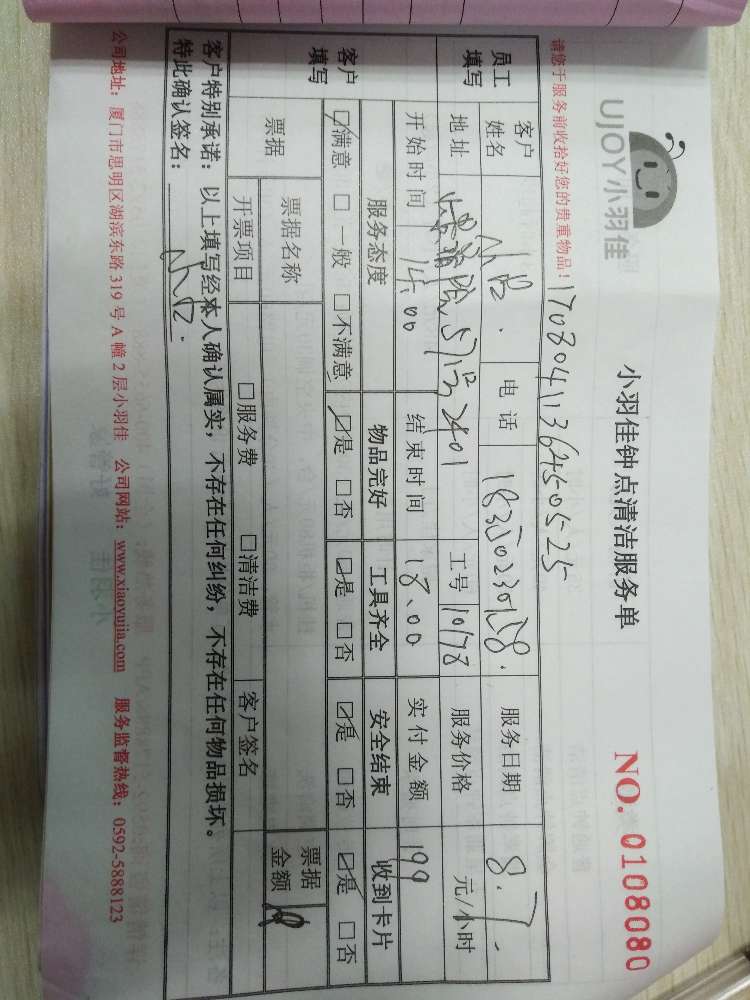 UJOY小羽佳
小羽佳钟点清洁服务单
NO. 0108080
请您于服务前收拾好您的贵重物品!
员工填写
客户姓名 电话 服务日期 8.7.
地址 2401 工号 1078 服务价格 元/小时
开始时间 14.00 结束时间 18.00 实付金额 199
客户填写
服务态度 物品完好 工具齐全 安全结束 收到卡片
☑满意 □一般 □不满意 ☑是 □否 ☑是 □否 ☑是 □否 ☑是 □否
票据 票据名称 票据金额
开票项目 □服务费 □清洁费 客户签名
客户特别承诺:以上填写经本人确认属实,不存在任何纠纷,不存在任何物品损坏。
特此确认签名:
公司地址:厦门市思明区湖滨东路 319 号 A 幢 2 层小羽佳 公司网站:www.xiaoyujia.com 服务监督热线:0592-5888123